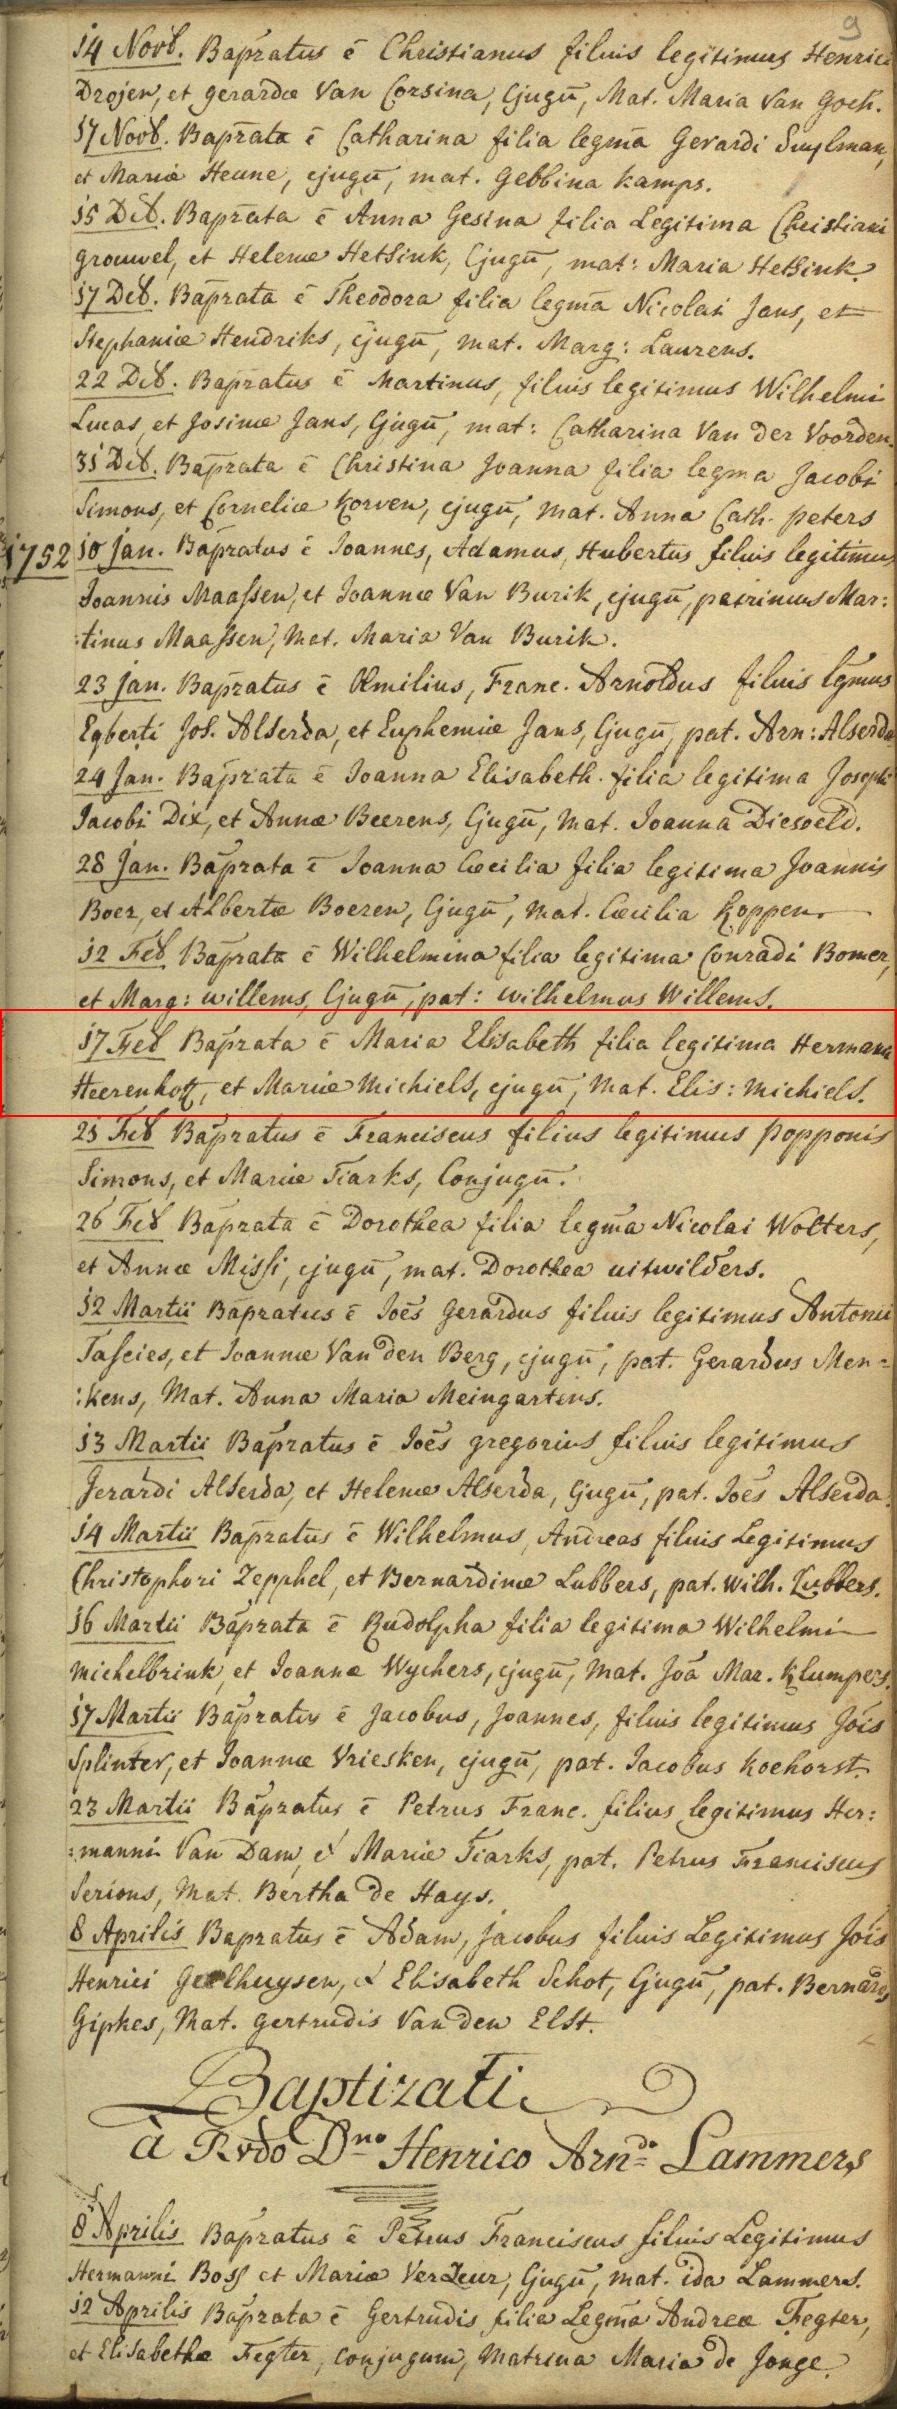 9
14 Novb. Bapratus ē Christianus filius legitimus Henrici
Drojer, et gerardæ Van Corsina, Cjugū, Mat. Maria Van Goch.
17 Novb. Baprata ē Catharina filia legma Gerardi Suylman,
et Mariæ Heune, cjugū, mat. Gebbina Kamps.
15 Deb. Baprata ē Anna Gesina filia Legitima Christiani
grouwel, et Helenæ Hetsink, Cjugū, mat: Maria Hetsink.
17 Deb. Baprata ē Theodora filia legma Nicolai Jans, et
Stephaniæ Hendriks, cjugū, mat. Marg: Laurens.
22 Deb. Bapratus ē Martinus, filius legitimus Wilhelmi
Lucas, et Josinæ Jans, Cjugū, mat: Catharina Van der Voorden.
31 Deb. Baprata ē Christina Joanna filia legma Jacobi
Simons, et Corneliæ Korven, cjugū, mat. Anna Cath. peters
1752 10 Jan. Bapratus ē Joannes, Adamus, Hubertus filius legitimus
Joannis Maassen, et Joannæ Van Burik, cjugū, patrinus Mar:
:tinus Maassen, Mat. Maria Van Burik.
23 Jan. Bapratus ē Æmilius, Franc. Arnoldus filius lgmus
Egberti Jos. Alserda, et Euphemiæ Jans, Cjugū, pat. Arn: Alserda
24 Jan. Baprata ē Joanna Elisabeth filia legitima Josephi
Jacobi Dix, et Annæ Beerens, Cjugū, Mat. Joanna Diesveld.
28 Jan. Baprata ē Joanna Cæcilia filia legitima Joannis
Boer, et Albertæ Boeren, Cjugū, Mat. Cæcilia Koppen.
12 Feb Baprata ē Wilhelmina filia legitima Conradi Bomer,
et Marg: willems, Cjugū, pat: wilhelmus Willems.
17 Feb Baprata ē Maria Elisabeth filia legitima Hermani
Heerenkott, et Mariæ Michiels, cjugū, Mat. Elis: Michiels.
25 Feb Bapratus ē Franciscus filius legitimus Popponis
Simons, et Mariæ Tiarks, Conjugū.
26 Feb Baprata ē Dorothea filia legma Nicolai Wolters,
et Annæ Missi, cjugū, mat. Dorothea uitwilders.
12 Martii Bapratus ē Joēs Gerardus filius legitimus Antonii
Tascies, et Joannæ Van den Berg, cjugū, pat. Gerardus Men=
:kens, Mat. Anna Maria Meingartens.
13 Martii Bapratus ē Joēs gregorius filius legitimus
Gerardi Alserda, et Helenæ Alserda, Cjugū, pat. Joēs Alserda.
14 Martii Bapratus ē Wilhelmus, Andreas filius Legitimus
Christophori Zepphel, et Bernardinæ Lubbers, pat. wilh. Lubbers.
16 Martii Baprata ē Rudolpha filia legitima Wilhelmi
Michelbrink, et Joannæ Wychers, cjugū, Mat. Joā Mar. Klumpers.
17 Martii Bapratus ē Jacobus, Joannes, filius legitimus Jōis
Splinter, et Joannæ Vriesken, cjugū, pat. Jacobus Koehorst.
23 Martii Bapratus ē Petrus Franc. filius legitimus Her:
:manni Van Dam, & Mariæ Tiarks, pat. Petrus Franciscus
Serions, Mat. Bertha de Hays.
8 Aprilis Bapratus ē Adam, Jacobus filius Legitimus Jōis
Henrici Geelhuysen, & Elisabeth Schot, Cjugū, pat. Bernards
Gipkes, Mat. gertrudis Van den Elst.
Baptizati
à Rvdo Dno Henrico Arndo Lammers
8 Aprilis Bapratus ē Petrus Franciscus filius Legitimus
Hermanni Boss et Mariæ Verleur, Cjugū, mat. ida Lammers.
12 Aprilis Baprata ē Gertrudis filia Legma Andreæ Fegter,
et Elisabethæ Fegter, conjugum, Matrina Maria de Jonge.